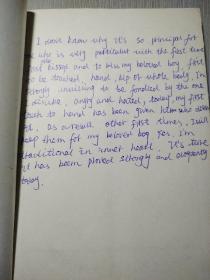 I don't know why it's so principal for
who is very particular with the first time
first kisses and to kiss my beloved boy, first
to be touched, hand, lip or whole body. I'm
strongly unwilling to be fondled by the one
I dislike, angry and hated, today, my first
touch to hand has been given
As a result other first times, I will
keep them for my beloved boy yes. I'm
traditional in inner heart. It's true
it has been proved strongly and
today.